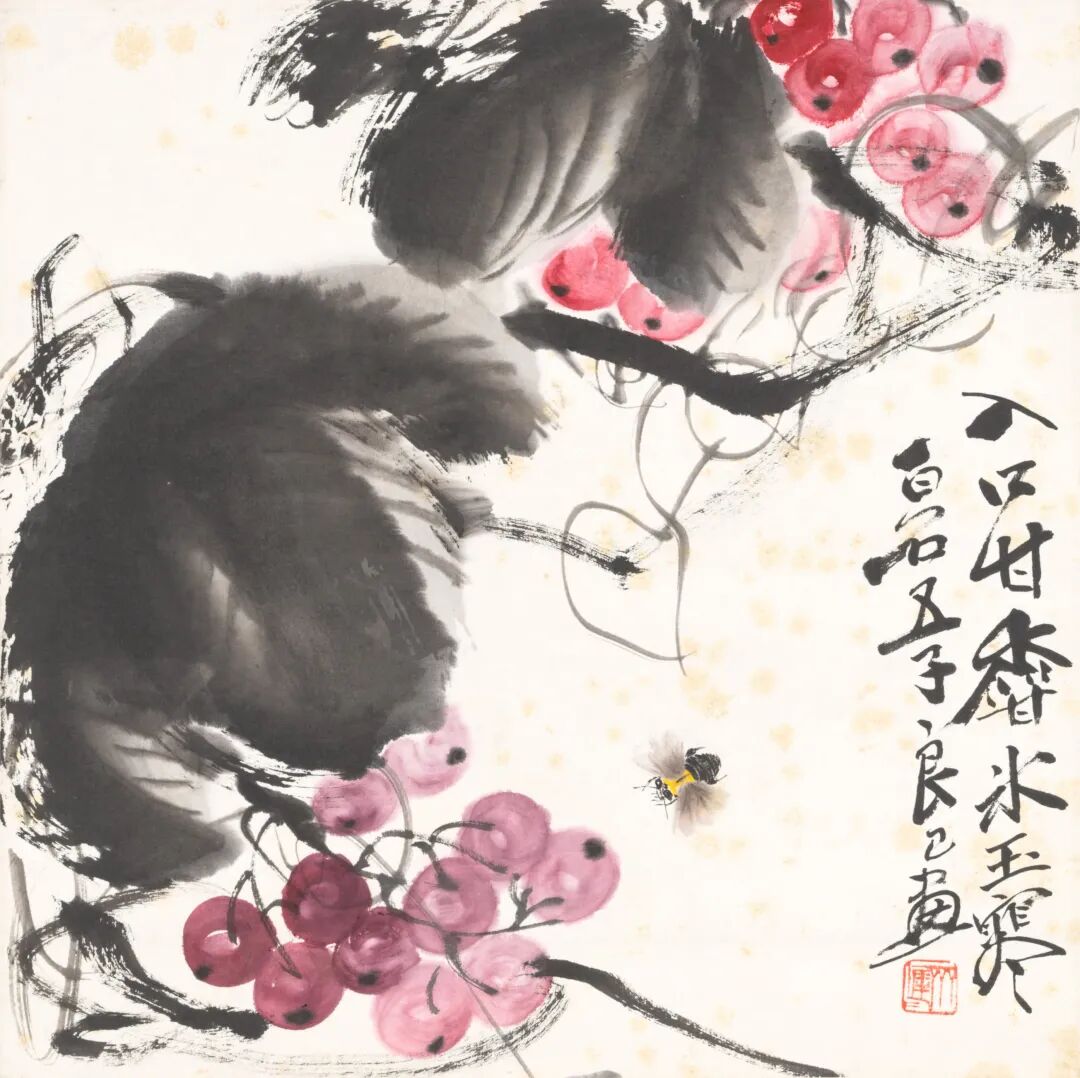 入口甘香冰玉寒
白石五子良已畫